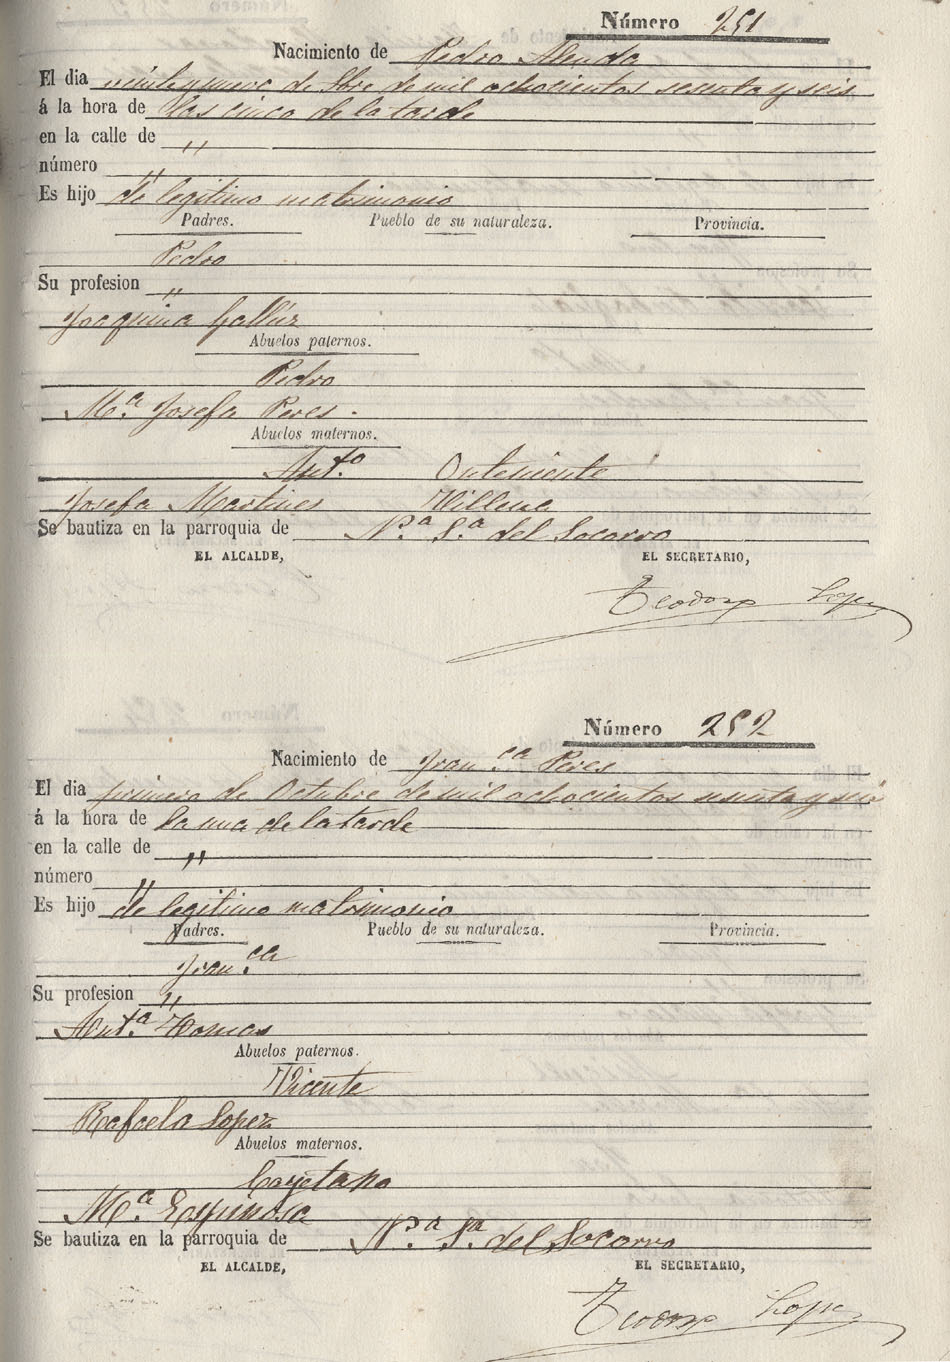 Número 251
Nacimiento de Pedro Alenda
El dia veinte y nueve de 9bre de mil ochocientos sesenta y seis
á la hora de las cinco de la tarde
en la calle de "
número "
Es hijo de legitimo matrimonio
Padres. Pueblo de su naturaleza. Provincia.
Pedro
Su profesion "
Joaquina Galluz
Abuelos paternos.
Pedro
M.ª Josefa Peres.
Abuelos maternos.
Ant.º Onteniente
Josefa Martines Villena
Se bautiza en la parroquia de N.ª S.ª del Socorro
EL ALCALDE, EL SECRETARIO,
Teodoro Lopez
Número 252
Nacimiento de Fran.ca Peres
El dia primero de Octubre de mil ochocientos sesenta y seis
á la hora de la una de la tarde
en la calle de "
número "
Es hijo de legitimo matrimonio
Padres. Pueblo de su naturaleza. Provincia.
Fran.co
Su profesion "
Ant.ª Tomas
Abuelos paternos.
Vicente
Rafaela Lopez
Abuelos maternos.
Cayetano
M.ª Espinosa
Se bautiza en la parroquia de N.ª S.ª del Socorro
EL ALCALDE, EL SECRETARIO,
Teodoro Lopez